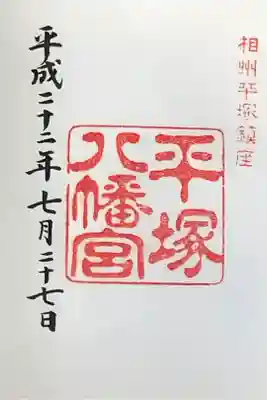 相州平塚鎮座
平塚
八幡宮
平成二十二年七月二十七日